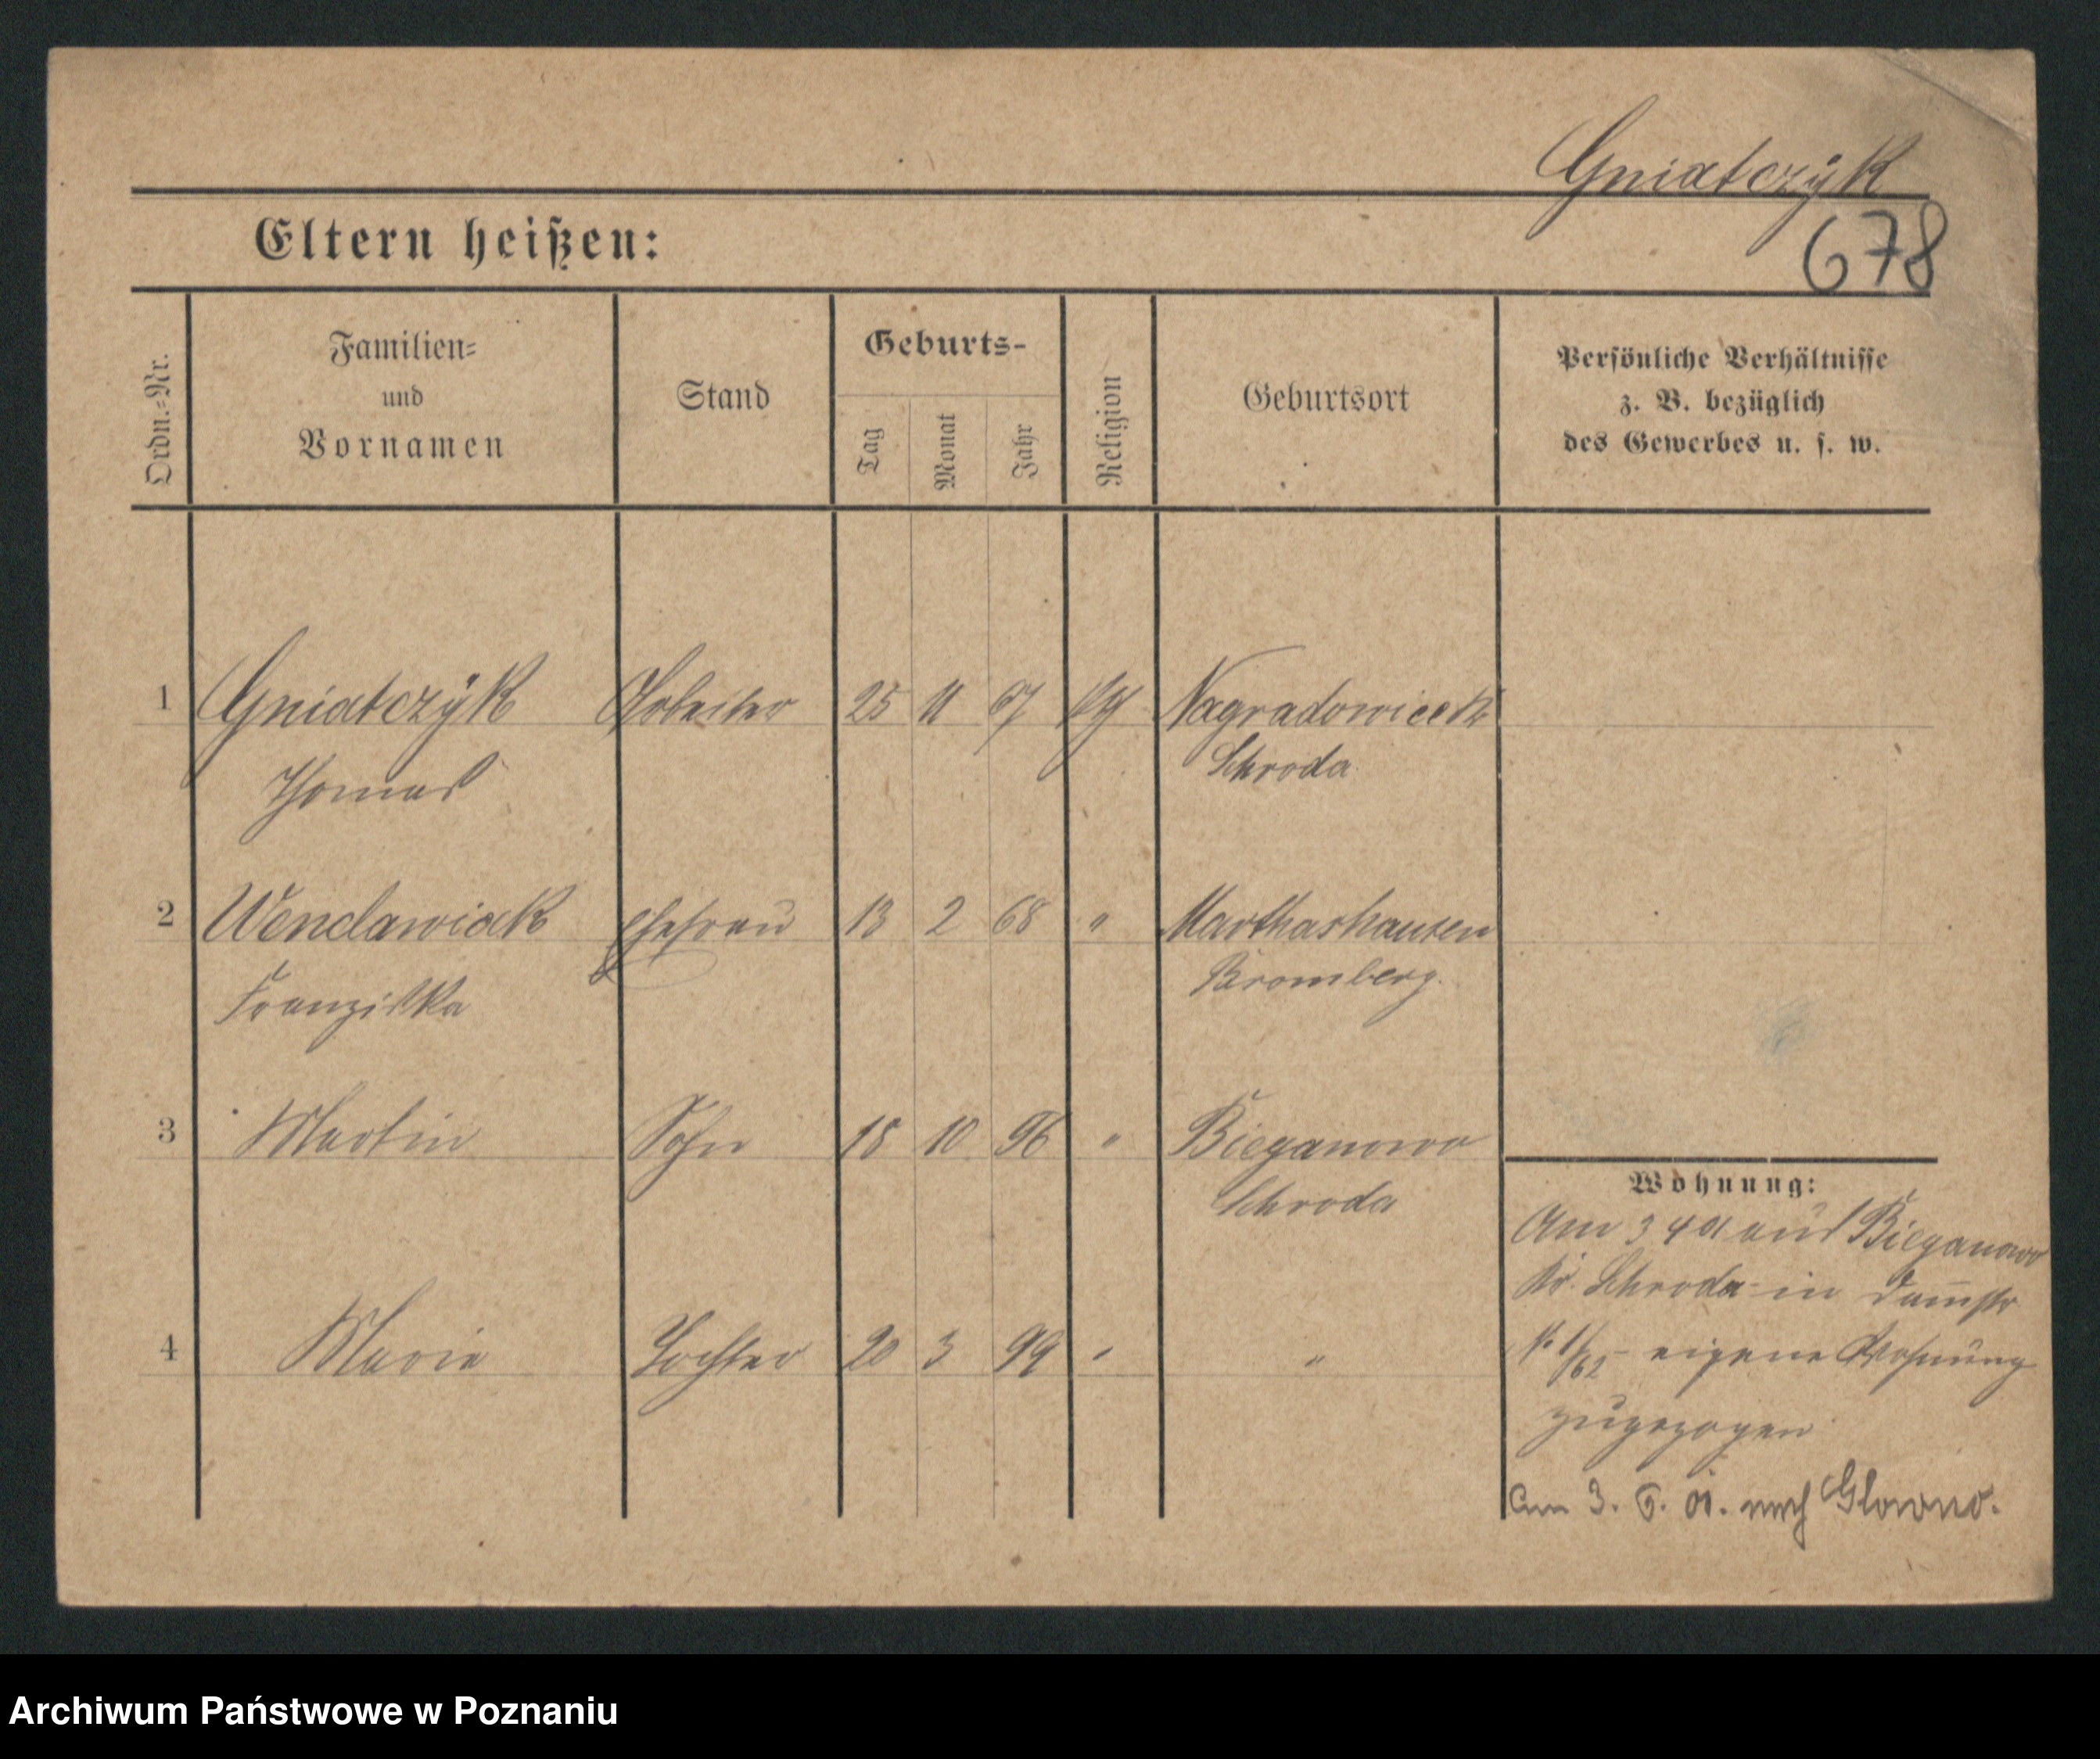 Gniatczÿk
678
Eltern heißen:
Ordn.=Nr.
Familien=
und
Vornamen
Stand
Geburts-
Tag
Monat
Jahr
Religion
Geburtsort
Persönliche Verhältnisse
z. B. bezüglich
des Gewerbes u. s. w.
1 Gniatczÿk Arbeiter 25 11 67 kg Nagradowice
Thomas Schroda
2 Wenclawiak Ehefrau 13 2 68 " Marthashausen
Franziska Bromberg.
3 Martin Sohn 18 10 96 " Bieganowo
Schroda
4 Maria Tochter 20 3 99 " "
Wohnung:
Am 3 4 01 aus Bieganowo
Kr. Schroda in Dammstr
eigene Wohnung
zugezogen
Am 3. 6. 01. nach Glowno.
Archiwum Państwowe w Poznaniu